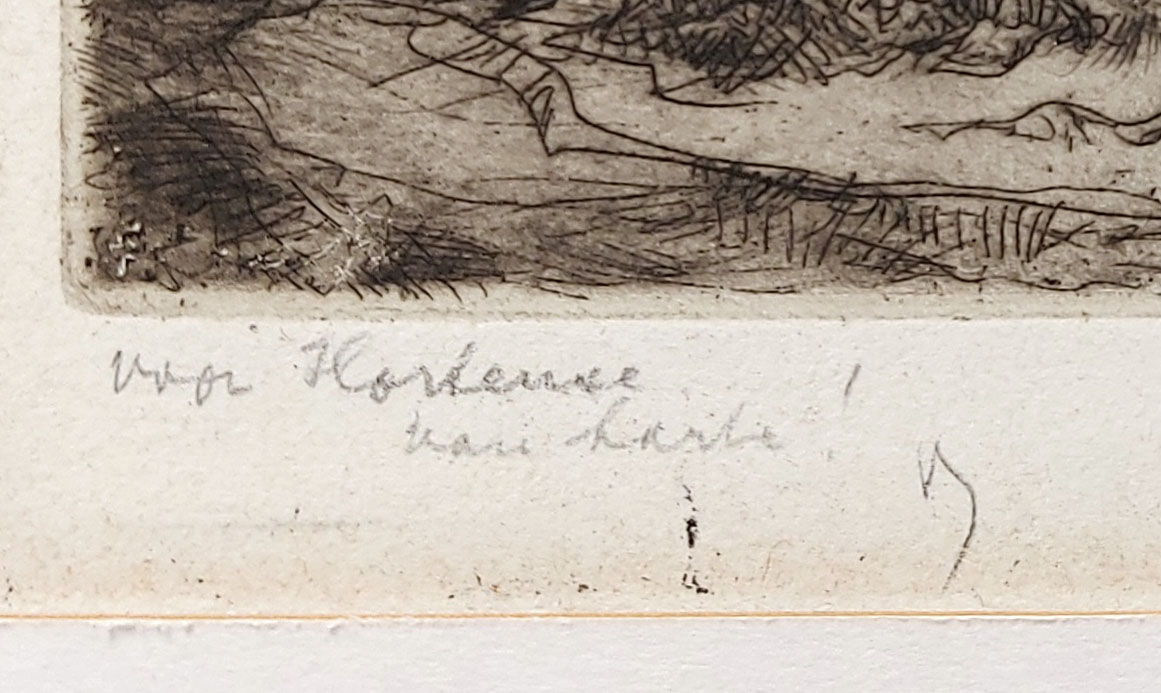 voor Hortense
van harte!